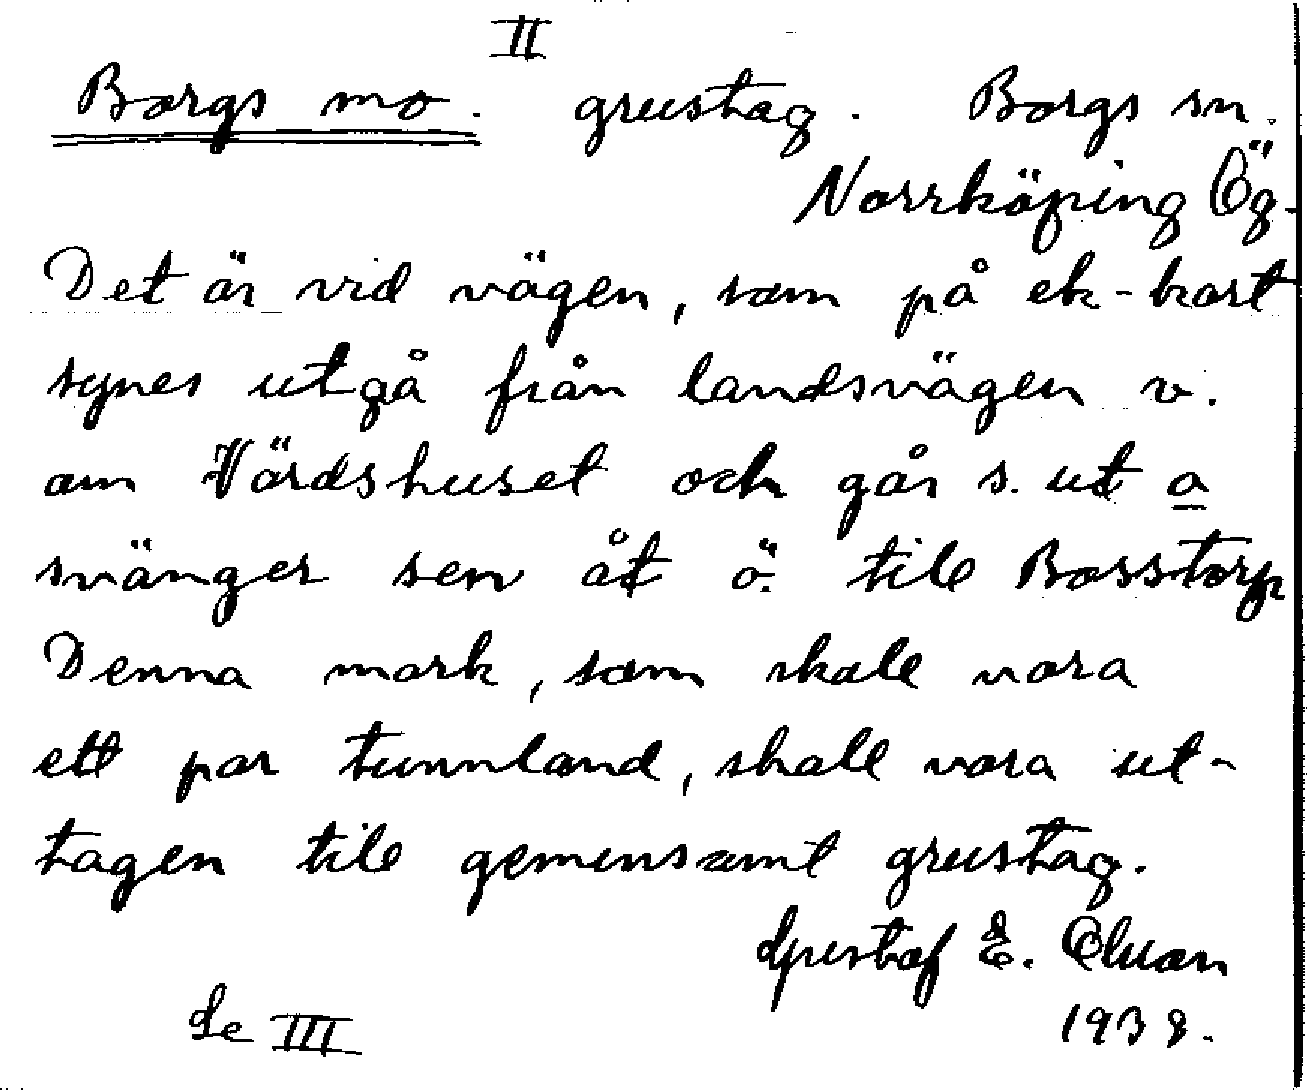 II
Borgs mo. grustag. Borgs sn.
Norrköping Ög.
Det är vid vägen, som på ek-kart
synes utgå från landsvägen v.
om Värdshuset och går s. ut o
svänger sen åt ö. till Borsstorp
Denna mark, som skall vara
ett par tunnland, skall vara ut-
tagen till gemensamt grustag.
Gustaf E.
1938.
Se III